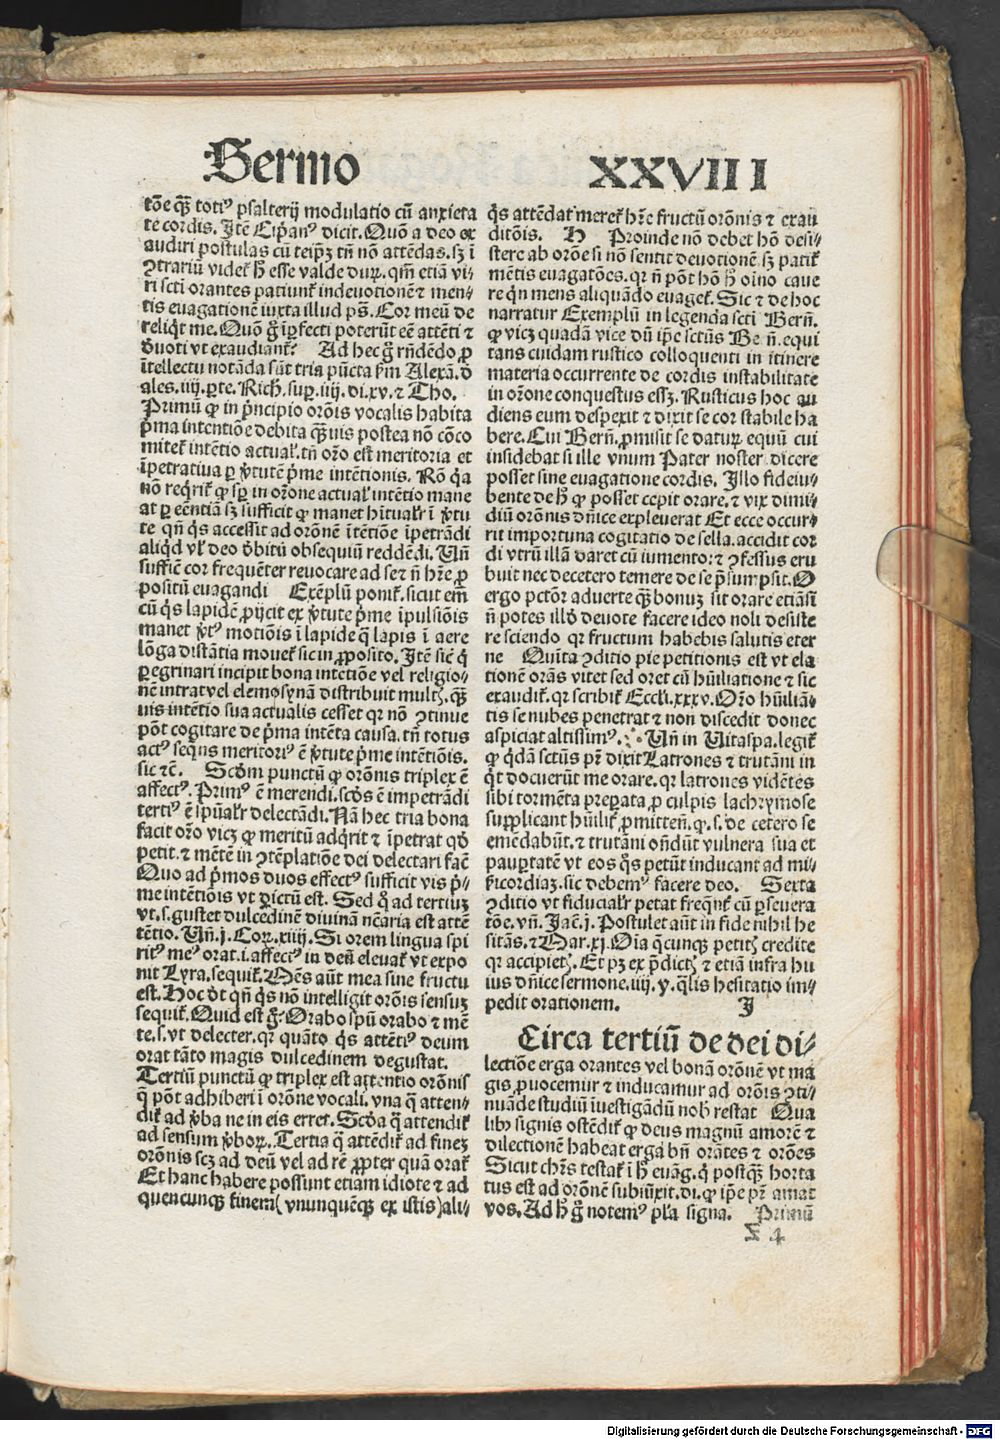 Sermo XXVIII
tōe q̄ꝫ totiꝰ psalterij modulatio cū anxieta
te cordis. Itē Cip̄anꝰ dicit. Quō a deo ex
audiri postulas cū teip̄ꝫ tn̄ nō attēdas. sꝫ ī
ꝯtrariū videt̉ h̄ esse valde durꝫ. qm̄ etiā vi⸗
ri scti orantes patiunt̉ indeuotionē ⁊ men⸗
tis euagationē iuxta illud ps̄. Cor meū de
reliq̄t me. Quō g̊ īꝑfecti poterūt eē attēti ⁊
d̓uoti vt exaudiant̉? Ad hec g̊ rn̄dēdo ꝓ
ītellectu notāda sūt tria pūcta ꝑm Alexā. d̓
ales. iiij. ꝑte. Rich. suꝑ. iiij. di. xv. ⁊ Tho.
Primū ꝙ in pͥncipio orōis vocalis habita
pͥma intentiōe debita q̄ꝫuis postea nō cōco
mitet̉ intētio actual̉. tn̄ orō est meritoria et
īpetratiua ꝑ v̓tutē pͥme intētionis. Rō qͥa
nō reqͥrit̉ ꝙ sꝑ in orōne actual̉ intētio mane
at ꝑ eēntiā sꝫ sufficit ꝙ manet hītual̉r ī v̓tu
te qn̄ qͥs accessit ad orōnē ītētiōe īpetrādi
aliqͥd vl̓ deo d̓bitū obsequiū reddēdi. Vn̄
suffic̄ cor frequēter reuocare ad se ⁊ n̄ hr̄e ꝓ
positū euagandi Exēplū ponit̉. sicut em̄
cū qͥs lapidē ꝓijcit ex v̓tute pͥme īpulsiōis
manet v̓tꝰ motiōis ī lapide q̄ lapis ī aere
lōga distātia mouet̉ sic in ꝓposito. Itē sic̄ qͥ
ꝑegrinari incipit bona intētiōe vel religio⸗
nē intrat vel elemosynā distribuit multꝭ. q̄ꝫ
uis intētio sua actualis cesset qꝛ nō ꝯtinue
pōt cogitare de pͥma intēta causa. tn̄ totus
actꝰ seqn̄s meritoriꝰ ē v̓tute pͥme intētiōis.
sic ⁊c̄. Scd̓m punctū ꝙ orōnis triplex ē
affectꝰ. Primꝰ ē merendi. scd̓s ē impetrādi
tertiꝰ ē spūal̉r delectādi. Nā hec tria bona
facit orō vicꝫ ꝙ meritū adqͥrit ⁊ īpetrat qd̓
petit. ⁊ mētē in ꝯtēplatiōe dei delectari fac̄
Quo ad pͥmos duos effectꝰ sufficit vis pͥ⸗
me intētiōis vt p̄dictū est. Sed q̊ ad tertiuꝫ
vt. s. gustet dulcedinē diuinā nc̄aria est attē
tētio. Vn̄. j. Corꝫ. xiiij. Si orem lingua spi
ritꝰ meꝰ orat. i. affectꝰ in deū eleuat̉ vt expo
nit Lyra. sequit̉. Mēs aūt mea sine fructu
est. Hoc d̓t qn̄ qͥs nō intelligit orōis sensuꝫ
sequit̉. Quid est g̊. Orabo spū orabo ⁊ mē
te. s. vt delecter. qꝛ quāto qͥs attētiꝰ deum
orat tāto magis dulcedinem degustat.
Tertiū punctū ꝙ triplex est attentio orōnis
q̄ pōt adhiberi ī orōne vocali. vna q̄ atten⸗
dit̉ ad v̓ba ne in eis erret. Scd̓a q̄ attendit̉
ad sensum v̓borꝫ. Tertia q̄ attēdit̉ ad fineꝫ
orōnis scꝫ ad deū vel ad rē ꝓpter quā orat̉
Et hanc habere possunt etiam idiote ⁊ ad
quencunqꝫ finem (vnunquēqꝫ ex istis) ali⸗
qͥs attēdat meret̉ hr̄e fructū orōnis ⁊ exau
ditōis. H Proinde nō debet hō desi⸗
stere ab orōe si nō sentit deuotionē sꝫ patit̉
mētis euagatōes. qꝛ n̄ pōt hō h̄ oīno caue
re qͥn mens aliquādo euaget̉. Sic ⁊ de hoc
narratur Exemplū in legenda scti Bern̄.
ꝙ vicꝫ quadā vice dū ip̄e sctūs Bern̄. equi
tans cuidam rustico colloquenti in itinere
materia occurrente de cordis instabilitate
in orōne conquestus essꝫ. Rusticus hoc au
diens eum despexit ⁊ dixit se cor stabile ha
bere. Cui Bern̄. ꝓmisit se daturꝫ equū cui
insidebat si ille vnum Pater noster dicere
posset sine euagatione cordis. Illo fideiu⸗
bente de h̄ ꝙ posset cepit orare. ⁊ vix dimi⸗
diū orōnis dn̄ice expleuerat Et ecce occur⸗
rit importuna cogitatio de sella. accidit cor
di vtrū illā daret cū iumento: ⁊ ꝯfessus eru
buit nec decetero temere de se p̄sumpsit. O
ergo pctōr aduerte q̄ꝫ bonuꝫ sit orare etiāsi
n̄ potes illd̓ deuote facere ideo noli desiste
re sciendo qꝛ fructum habebis salutis eter
ne Quīta ꝯditio pie petitionis est vt ela
tionē orās vitet sed oret cū hūiliatione ⁊ sic
exaudit̉. qꝛ scribit̉ Eccl̓i. xxxv. Orō hūiliā⸗
tis se nubes penetrat ⁊ non discedit donec
aspiciat altissimꝰ. Vn̄ in Vitaspa. legit̉
ꝙ qͥdā sctūs pr̄ dixit Latrones ⁊ trutāni in
qͥt docuerūt me orare. qꝛ latrones vidētes
sibi tormēta preparata ꝓ culpis lachrymose
supplicant hūilit̉ ꝓmitten̄. ꝙ. s. de cetero se
emēdabūt. ⁊ trutāni ondūt vulnera sua et
pauꝑtatē vt eos qͦs petūt inducant ad mi⸗
sicordiaꝫ. sic debemꝰ facere deo. Sexta
ꝯditio vt fiducial̉r petat freqn̄t̉ cū ꝑseuera
tōe. vn̄. Jac̄. j. Postulet aūt in fide nihil he
sitās. ⁊ Mar. xj. Oīa q̄cunqꝫ petitꝭ credite
qꝛ accipietꝭ. Et pꝫ ex p̄dictꝭ ⁊ etiā infra hu
ius dn̄ice sermone. iiij. y. q̄lis hesitatio im⸗
pedit orationem. J
Circa tertiū de dei di⸗
lectiōe erga orantes vel bonā orōnē vt ma
gis ꝓuocemur ⁊ inducamur ad orōis ꝯti⸗
nuāde studiū īuestigādū nob̄ restat Qua
libꝰ signis ostēdit̉ ꝙ deus magnū amorē ⁊
dilectionē habeat erga bn̄ orātes ⁊ orōes
Sicut chr̄s testat̉ ī h̄ euāg. qͥ postq̄ꝫ horta
tus est ad orōnē subiūxit. di. ꝙ ip̄e pr̄ amat
vos. Ad h̄ g̊ notemꝰ pl̓a signa. Primū
4
Digitalisierung gefördert durch die Deutsche Forschungsgemeinschaft - DFG